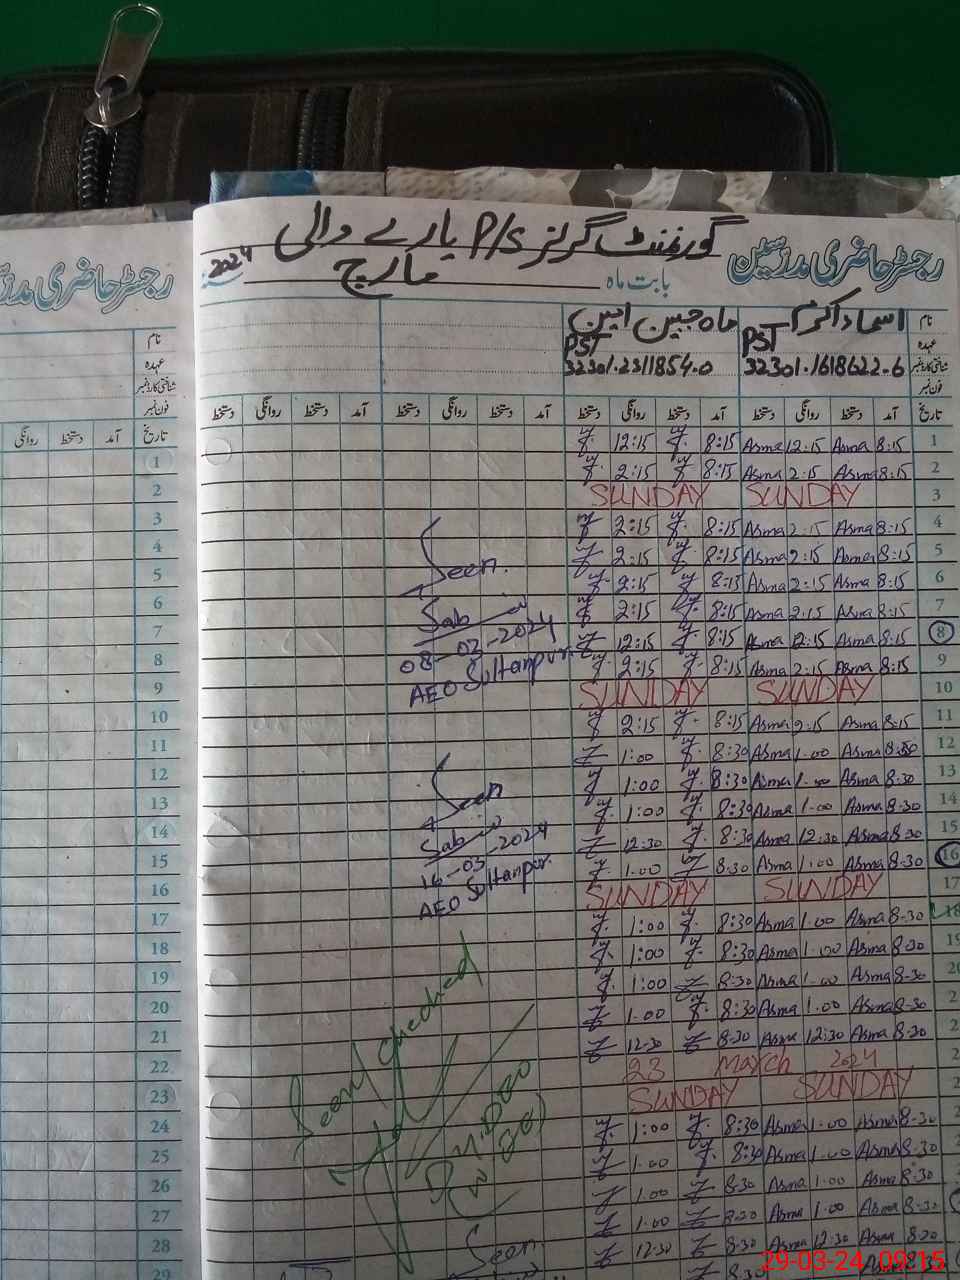 گورنمنٹ گرلز P/S یارے والی
رجسٹر حاضری مدرسین
بابت ماہ مارچ 2024
رجسٹر حاضری مدرسین
نام اسماء اکرم ماہ جبین امین
عہدہ PST PST
شناختی کارڈ نمبر 32301.1618622-6 32301.2311854.0
فون نمبر
تاریخ آمد دستخط روانگی دستخط آمد دستخط روانگی دستخط آمد دستخط روانگی دستخط آمد دستخط روانگی دستخط
1 8:15 Asma 12:15 Asma 8:15 12:15
2 8:15 Asma 2:15 Asma 8:15 2:15
3 SUNDAY SUNDAY
4 8:15 Asma 2:15 Asma 8:15 2:15
5 8:15 Asma 2:15 Asma 8:15 2:15
6 8:15 Asma 2:15 Asma 8:15 2:15
7 8:15 Asma 2:15 Asma 8:15 2:15
8 8:15 Asma 12:15 Asma 8:15 12:15
9 8:15 Asma 2:15 Asma 8:15 2:15
10 SUNDAY SUNDAY
11 8:15 Asma 2:15 Asma 8:15 2:15
12 8:30 Asma 1.00 Asma 8:30 1:00
13 8:30 Asma 1.00 Asma 8:30 1:00
14 8:30 Asma 1.00 Asma 8:30 1:00
15 8:30 Asma 12:30 Asma 8:30 12:30
16 8:30 Asma 1:00 Asma 8:30 1:00
17 SUNDAY SUNDAY
18 8:30 Asma 1.00 Asma 8:30 1:00
19 8:30 Asma 1.00 Asma 8:30 1:00
8:30 Asma 1.00 Asma 8:30 1:00
8:30 Asma 1.00 Asma 8:30 1.00
8:30 Asma 12:30 Asma 8:30 12:30
23 March 2024
SUNDAY SUNDAY
8:30 Asma 1.00 Asma 8:30 1:00
8:30 Asma 1.00 Asma 8:30 1.00
8:30 Asma 1.00 Asma 8:30 1.00
8:30 Asma 1.00 Asma 8:30 1.00
8:20 Asma 12:30 Asma 8:30 12:30
Asma 8:30
Seen.
08-03-2024
AEO Sultanpur.
Seen
16-03-2024
AEO Sultanpur.
Seen/Checked
Seen
نام
عہدہ
شناختی کارڈ نمبر
فون نمبر
تاریخ آمد دستخط روانگی
1
2
3
4
5
6
7
8
9
10
11
12
13
14
15
16
17
18
19
20
21
22
23
24
25
26
27
28
29
29-03-24 09:15